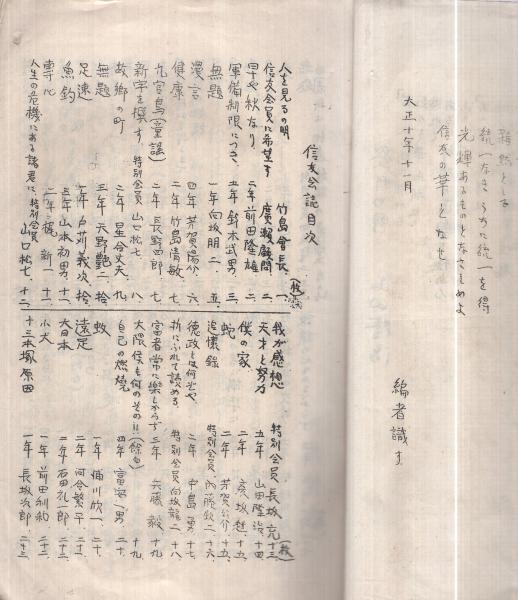 雑然とした
統一なきうちに統一を得
光輝あるものとなさしめよ
信友の華となせ
大正十年十一月
編者識す
信友会誌目次
人を見るの明 竹島會長 一
信友会員に希望す 廣瀬顧問 二
早や秋なり 二年 前田隆雄 二
軍備制限につき 五年 鈴木武男 三
無題 一年 向坂朋二 五
漫言 四年 芳賀陽介 六
健康 二年 竹島清敏 七
九官鳥(童謡) 二年 長野四郎 七
新宇を撰す 特別会員 山口松七 八
故郷の町 二年 星合丈夫 九
無題 三年 天野艶二 拾
足速 一年 戸苅義次 拾
魚釣 五年 山本初男 十一
専心 一年 梶新一 十一
人生の危機にある諸君に 特別会員 山口松七 十二
我が感想 特別会員 長坂亮 十三
天才と努力 五年 山田隆治 十四
僕の家 二年 彦坂 十五
蛇 二年 芳賀公介 十五
追懐録 特別会員 内藤欽一 十六
徳政とは何ぞや 二年 中島勇 十七
折にふれて詠める 特別会員 向坂龍二 十八
富者常に楽しからず 三年 兵藤毅 十九
大隈侯も何のその!!(餘白) 十九
自己の燃焼 四年 富安一男 二十
蚊 一年 浦川欣一 二十
遠足 二年 河合繁平 二十一
大日本 二年 石田礼一郎 二十二
小犬 一年 前田利和 二十二
十三本塚原因 一年 長坂次郎 二十三